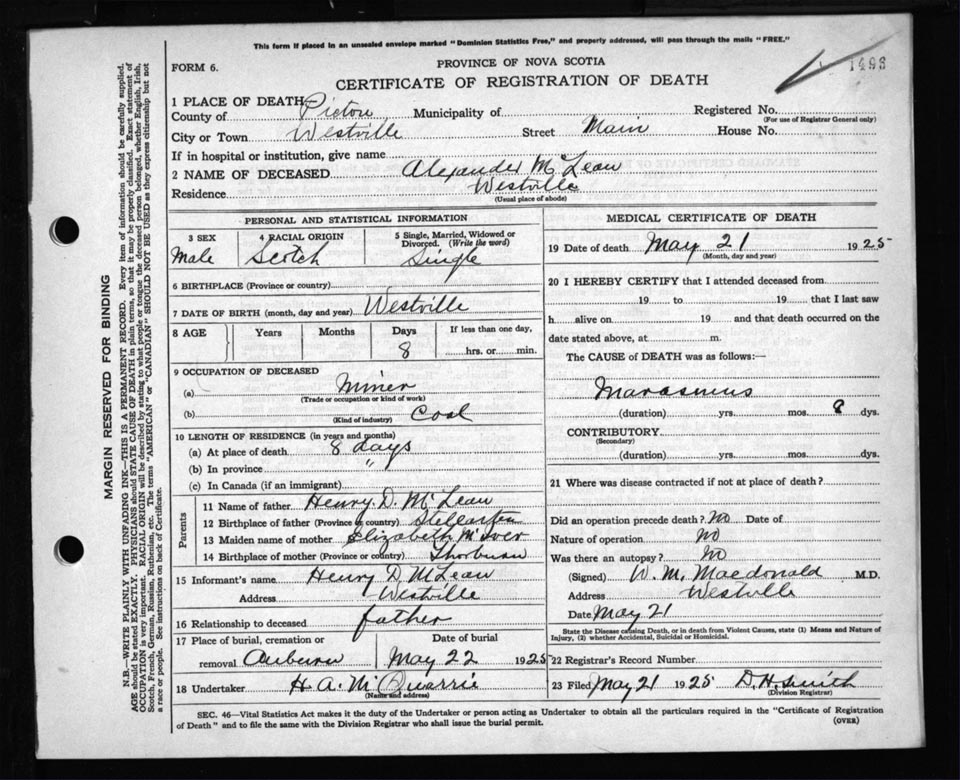 This form if placed in an unsealed envelope marked "Dominion Statistics Free," and properly addressed, will pass through the mails "FREE."
FORM 6.
PROVINCE OF NOVA SCOTIA
1493
CERTIFICATE OF REGISTRATION OF DEATH
1 PLACE OF DEATH
County of Pictou Municipality of Registered No.
(For use of Registrar General only)
City or Town Westville Street Main House No.
If in hospital or institution, give name
2 NAME OF DECEASED Alexander McLean
Residence Westville
(Usual place of abode)
PERSONAL AND STATISTICAL INFORMATION
3 SEX 4 RACIAL ORIGIN 5 Single, Married, Widowed or Divorced. (Write the word)
Male Scotch Single
6 BIRTHPLACE (Province or country)
7 DATE OF BIRTH (month, day and year) Westville
8 AGE Years Months Days If less than one day,
8 hrs. or min.
9 OCCUPATION OF DECEASED
(a) Miner
(Trade or occupation or kind of work)
(b) Coal
(Kind of industry)
10 LENGTH OF RESIDENCE (in years and months)
(a) At place of death 8 days
(b) In province "
(c) In Canada (if an immigrant)
Parents
11 Name of father Henry D. McLean
12 Birthplace of father (Province or country) Stellarton
13 Maiden name of mother Elizabeth McIver
14 Birthplace of mother (Province or country) Thorburn
15 Informant's name Henry D McLean
Address Westville
16 Relationship to deceased father
17 Place of burial, cremation or Date of burial
removal Auburn May 22 1925
18 Undertaker H. A. McQuarrie
(Name and address)
MEDICAL CERTIFICATE OF DEATH
19 Date of death May 21 1925
(Month, day and year)
20 I HEREBY CERTIFY that I attended deceased from
19 to 19 that I last saw
h alive on 19 and that death occurred on the
date stated above, at m.
The CAUSE of DEATH was as follows:—
Marasmus
(duration) yrs. mos. 8 dys.
CONTRIBUTORY
(Secondary)
(duration) yrs. mos. dys.
21 Where was disease contracted if not at place of death?
Did an operation precede death? No Date of
Nature of operation No
Was there an autopsy? No
(Signed) W. M. Macdonald M.D.
Address Westville
Date May 21
State the Disease causing Death, or in death from Violent Causes, state (1) Means and Nature of
Injury, (2) whether Accidental, Suicidal or Homicidal.
22 Registrar's Record Number
23 Filed May 21 1925 D. H. Smith
(Division Registrar)
SEC. 46—Vital Statistics Act makes it the duty of the Undertaker or person acting as Undertaker to obtain all the particulars required in the "Certificate of Registration
of Death" and to file the same with the Division Registrar who shall issue the burial permit.
(OVER)
MARGIN RESERVED FOR BINDING
N.B.—WRITE PLAINLY WITH UNFADING INK—THIS IS A PERMANENT RECORD. Every item of information should be carefully supplied.
AGE should be stated EXACTLY. PHYSICIANS should STATE CAUSE OF DEATH in plain terms, so that it may be properly classified. Exact statement of
OCCUPATION is very important. RACIAL ORIGIN will be described by stating to what people or tongue the deceased person belonged, whether English, Irish,
Scotch, French, German, Russian, Ruthenian, etc. The terms "AMERICAN" or "CANADIAN" SHOULD NOT BE USED as they express citizenship but not
a race or people. See instructions on back of Certificate.